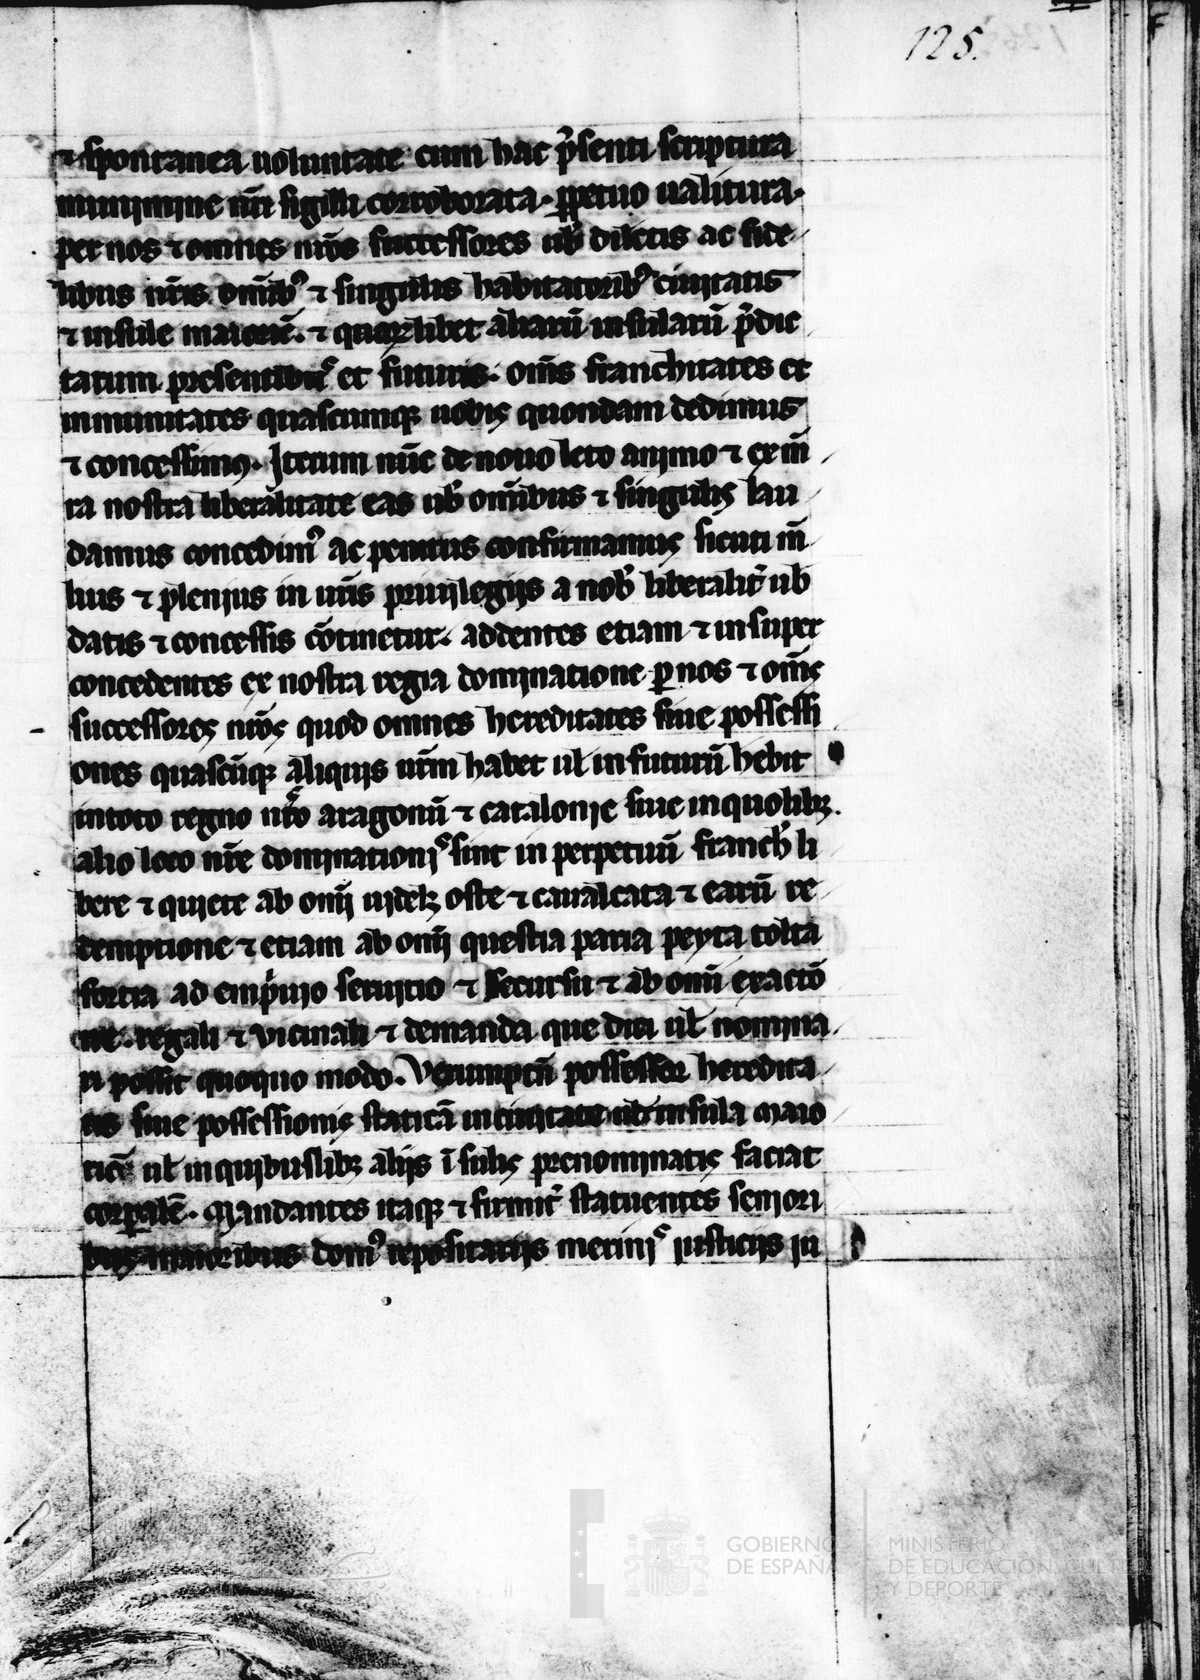 125.
⁊ spontanea uoluntate cum hac p̃senti scriptura
munimine nr̃i sigilli corroborata. ꝑpetuo ualitura.
per nos ⁊ omnes nr̃os successores ub̾ dilectis ac fide
libus nr̃is om̃ib⁹ ⁊ singulis habitatorib⁹ ciuitatis
⁊ insule maioric̃. ⁊ quarũlibet aliarũ insularũ p̃dic
tarum presentibus et futuris. om̃s franchitates et
inmunitates quascumqꝫ uobis quondam dedimus
⁊ concessimus. Iterum nũc de nouo leto animo ⁊ ex m̃
ra nostra liberalitate eas ub̾ om̃ibus ⁊ singulis lau
damus concedim⁹ ac penitus confirmamus sicuti m̃
lius ⁊ plenius in ur̃is priuilegijs a nob̾ liberalit̾ ub̾
datis ⁊ concessis cõtinetur. addentes etiam ⁊ insuper
concedentes ex nostra regia dominatione ꝑ nos ⁊ om̃s
successores nr̃os quod omnes hereditates siue possessi
ones quascũqꝫ aliquis ur̃m habet ul̾ in futurũ heb̾it
in toto regno nr̃o aragonũ ⁊ catalonie siue in quolibꝫ.
alio loco nr̃e dominationis sint in perpetuũ franch̾ li
bere ⁊ quiete ab om̃i uidelꝫ oste ⁊ caualcata ⁊ earũ re
demptione ⁊ etiam ab om̃i questia paria peyta tolta
fortia ad empriuio seruitio ⁊ secursu ⁊ ab om̃i exactõ
ne. regali ⁊ vicinali ⁊ demanda que dici ul̾ nomina
ri possit quoquo modo. Verumptñ possessor heredita
tis siue possessionis staticã in ciuitate ul̾ insula maio
ric̃ ul̾ in quibuslibꝫ alijs ĩsulis prenominatis faciat
corꝑalẽ. Mandantes itaqꝫ ⁊ firmit̾ statuentes seniori
bus maioribus dom⁹ repositarijs merinis iusticijs iu
GOBIERNO
DE ESPAÑA
MINISTERIO
DE EDUCACIÓN, CULTURA
Y DEPORTE